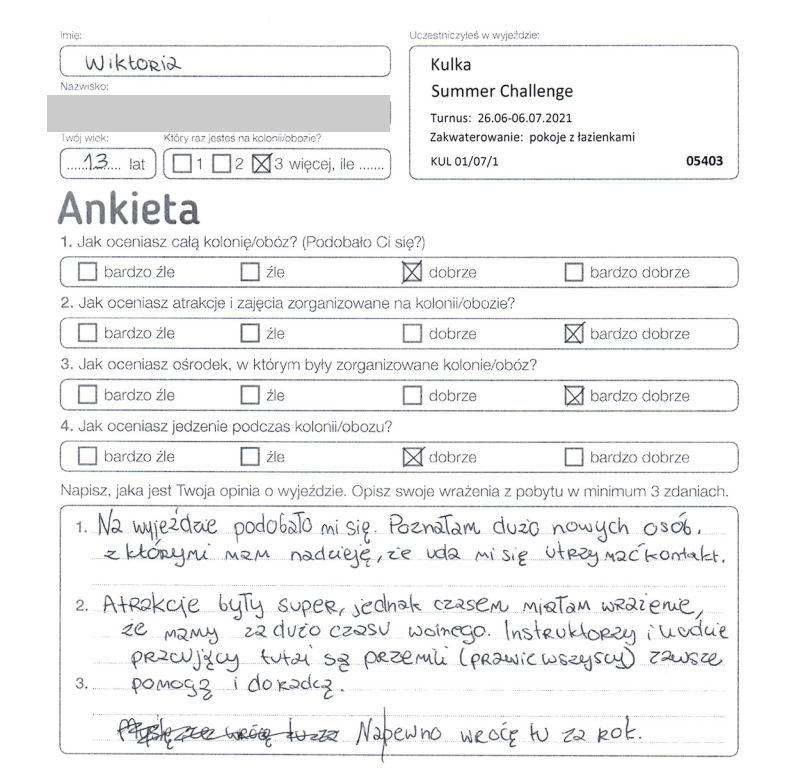 Imię:
Wiktoria
Nazwisko:
Twój wiek:
Który raz jesteś na kolonii/obozie?
.....13.... lat
1 2 3 więcej, ile .......
Uczestniczyłeś w wyjeździe:
Kulka
Summer Challenge
Turnus: 26.06-06.07.2021
Zakwaterowanie: pokoje z łazienkami
KUL 01/07/1
05403
Ankieta
1. Jak oceniasz całą kolonię/obóz? (Podobało Ci się?)
bardzo źle źle dobrze bardzo dobrze
2. Jak oceniasz atrakcje i zajęcia zorganizowane na kolonii/obozie?
bardzo źle źle dobrze bardzo dobrze
3. Jak oceniasz ośrodek, w którym były zorganizowane kolonie/obóz?
bardzo źle źle dobrze bardzo dobrze
4. Jak oceniasz jedzenie podczas kolonii/obozu?
bardzo źle źle dobrze bardzo dobrze
Napisz, jaka jest Twoja opinia o wyjeździe. Opisz swoje wrażenia z pobytu w minimum 3 zdaniach.
1. Na wyjeździe podobało mi się. Poznałam dużo nowych osób,
z którymi mam nadzieję, że uda mi się utrzymać kontakt.
2. Atrakcje były super, jednak czasem miałam wrażenie,
że mamy za dużo czasu wolnego. Instruktorzy i ludzie
pracujący tutaj są przemili (prawie wszyscy) zawsze
3. pomogą i doradzą.
Napewno wrócę tu za rok.